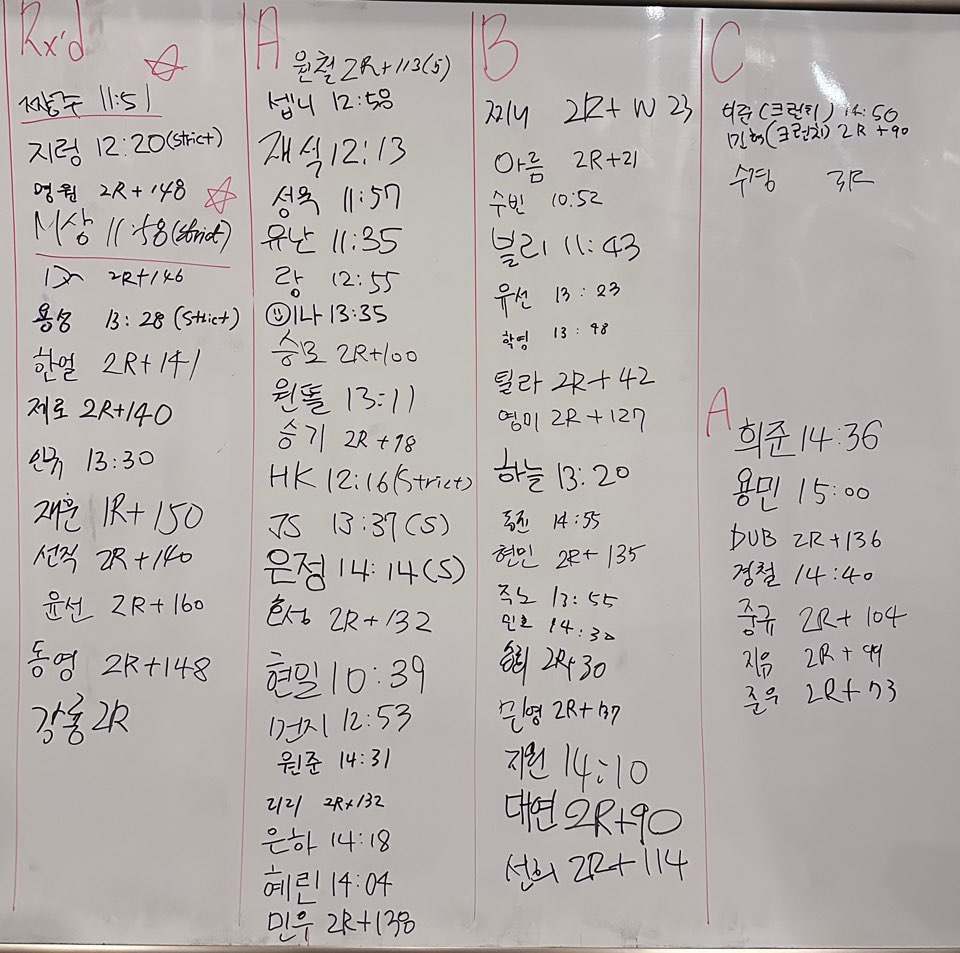 Rx'd
짱구 11:51
지렁 12:20(strict)
영원 2R+148
M상 11:58(strict)
2R+146
용성 13:28 (Strict)
한얼 2R+141
제로 2R+140
인규 13:30
재훈 1R+150
선직 2R+140
윤선 2R+160
동영 2R+148
강룡 2R
A
원철 2R+113(S)
셉니 12:58
재석 12:13
성욱 11:57
유난 11:35
랑 12:55
이나 13:35
승모 2R+100
원똘 13:11
승기 2R+98
HK 12:16(Strict)
JS 13:37(S)
은정 14:14(S)
효성 2R+132
현밀 10:39
건지 12:53
원준 14:31
리리 2R+132
은하 14:18
혜린 14:04
민우 2R+138
B
찌니 2R+ W 23
아름 2R+21
수빈 10:52
블리 11:43
유선 13:23
학영 13:48
틸라 2R+42
영미 2R+127
하늘 13:20
동진 14:55
현민 2R+135
주노 13:55
민호 14:30
2R+30
민영 2R+137
지원 14:10
대연 2R+90
선희 2R+114
C
(크런치) 14:50
민혁(크런치) 2R+90
수경 3R
A
희준 14:36
용민 15:00
DUB 2R+136
경철 14:40
중규 2R+104
지유 2R+99
준우 2R+73